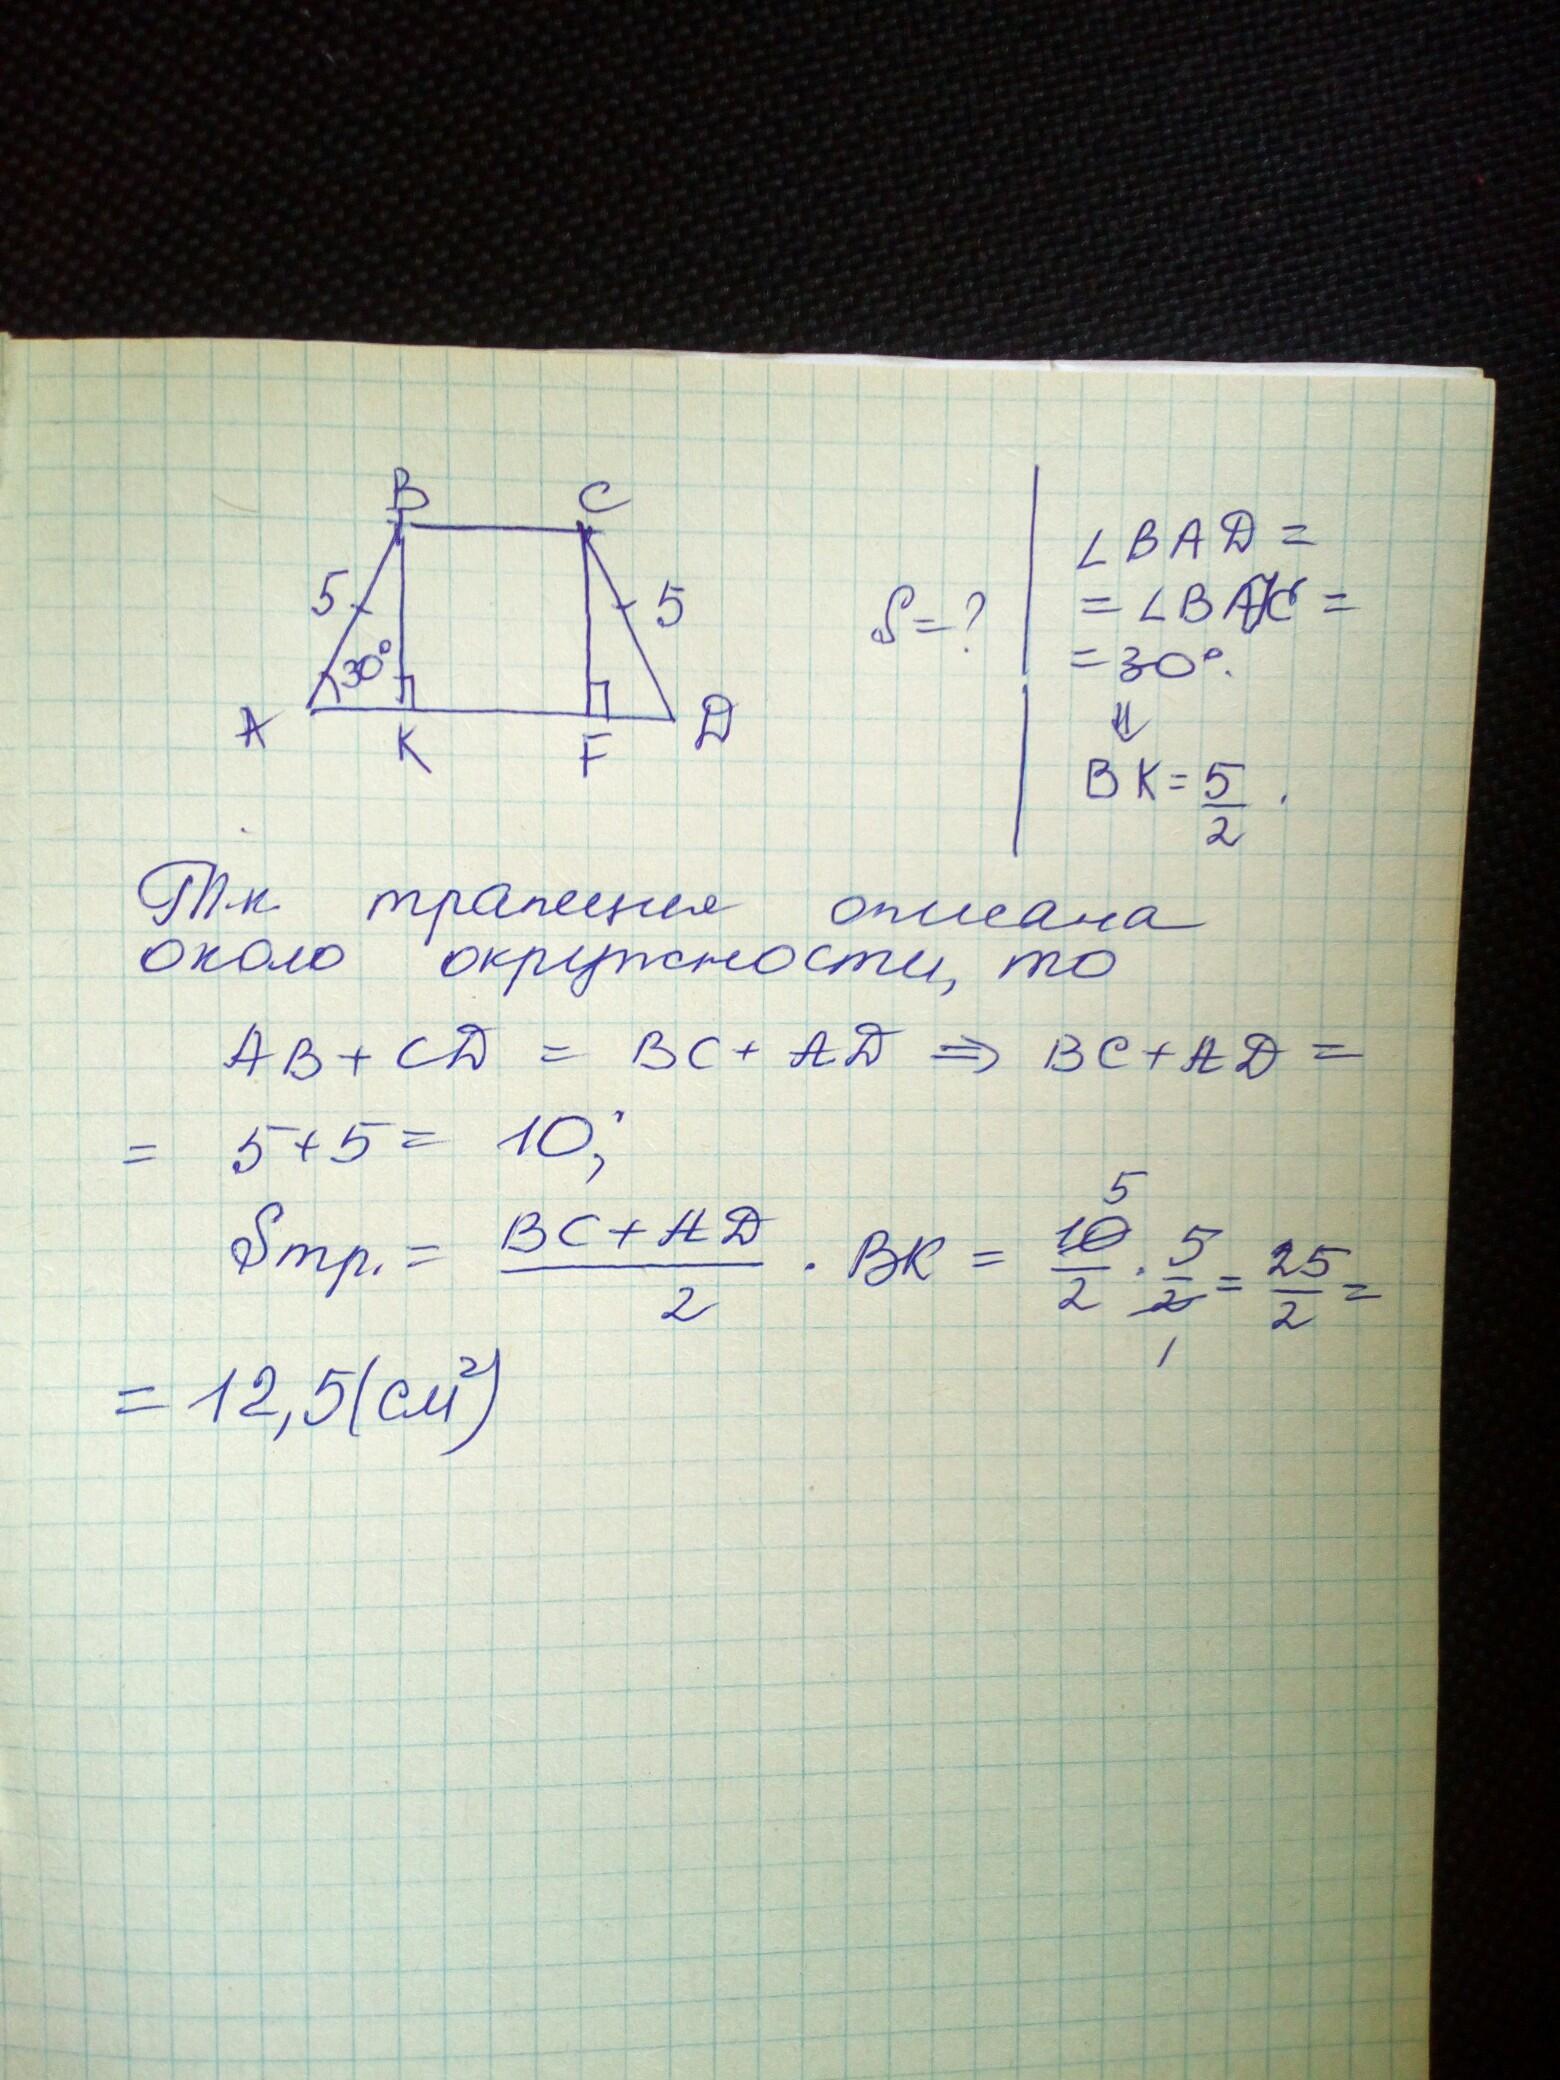 B C
5 5
30°
A K F D
S = ?
∠BAD =
= ∠BAK =
= 30°.
⇓
BK = 5/2.
Тк трапеция описана
около окружности, то
AB + CD = BC + AD ⇒ BC + AD =
= 5 + 5 = 10;
Sтр. = (BC + AD)/2 · BK = 10/2 · 5/2 = 25/2 =
5
1
= 12,5 (см²)